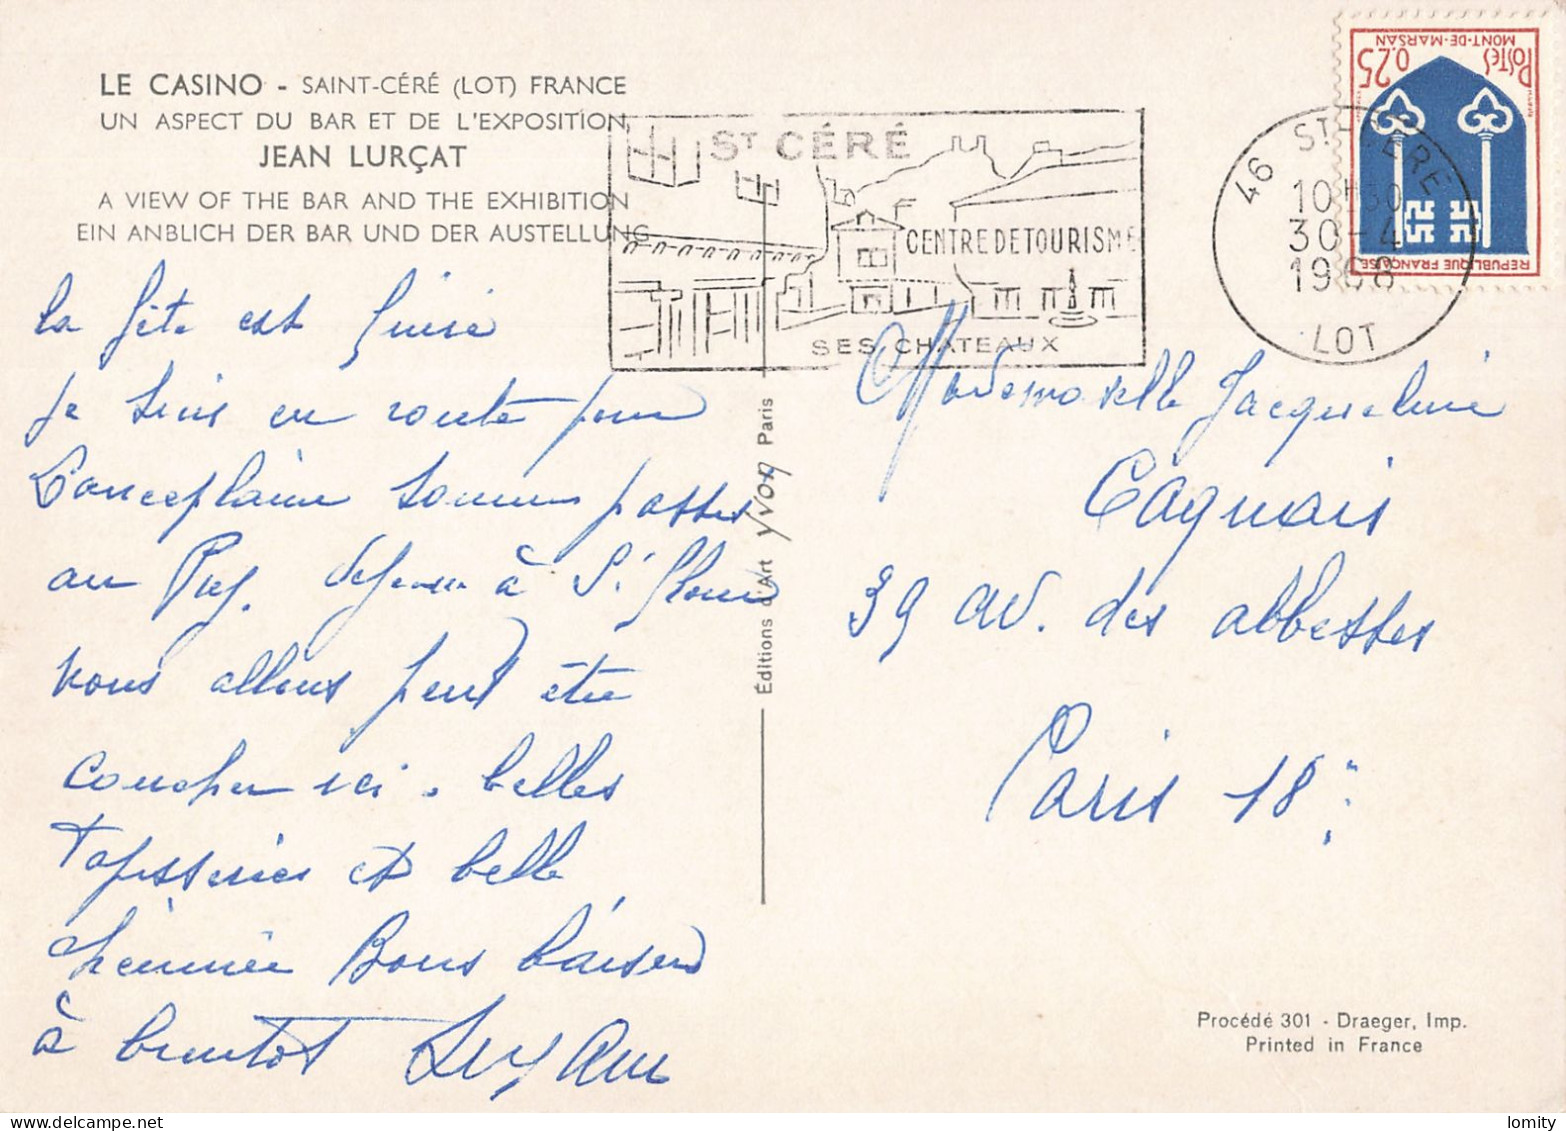 LE CASINO - SAINT-CÉRÉ (LOT) FRANCE
UN ASPECT DU BAR ET DE L'EXPOSITION
JEAN LURÇAT
A VIEW OF THE BAR AND THE EXHIBITION
EIN ANBLICH DER BAR UND DER AUSTELLUNG
la fête est finie
je suis en route pour
sommes passés
au Puy. déjeuner à St flour
nous allons peut être
coucher ici. belles
tapisseries et belle
cheminée Bons baisers
à bientôt Suzanne
Editions d'Art YVON Paris
ST CÉRÉ
CENTRE DE TOURISME
SES CHATEAUX
46 ST-CERE
10H30
30-4
1966
LOT
POSTES
0,25
MONT-DE-MARSAN
REPUBLIQUE FRANÇAISE
Mademoiselle Jacqueline
Cagnais
39 av. des abbesses
Paris 18e
Procédé 301 - Draeger, Imp.
Printed in France
lomity